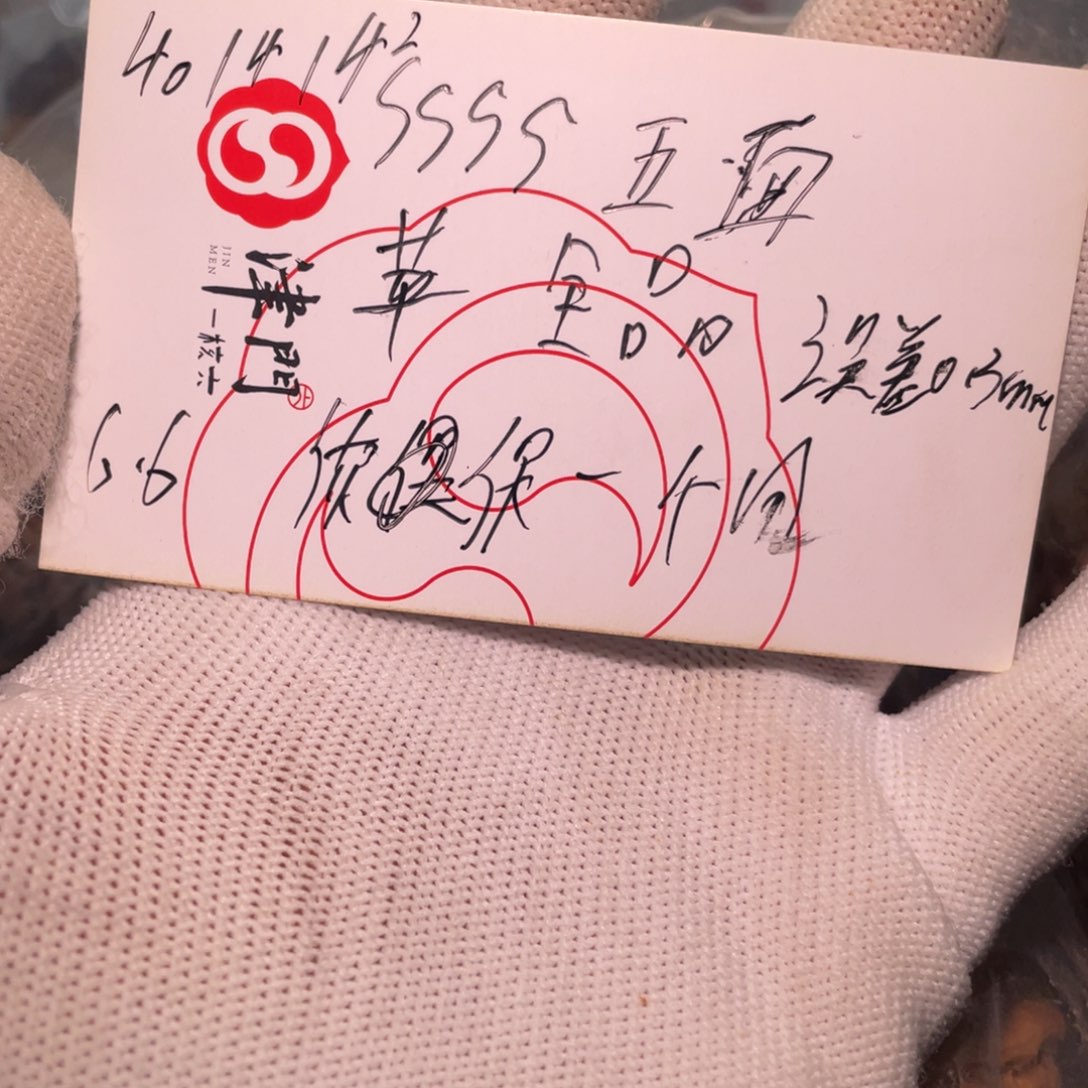 40 14 14² SSSS 五面
单 全品
误差0.3mm
6.6 保一个月
JIN
MEN
津門
一核六